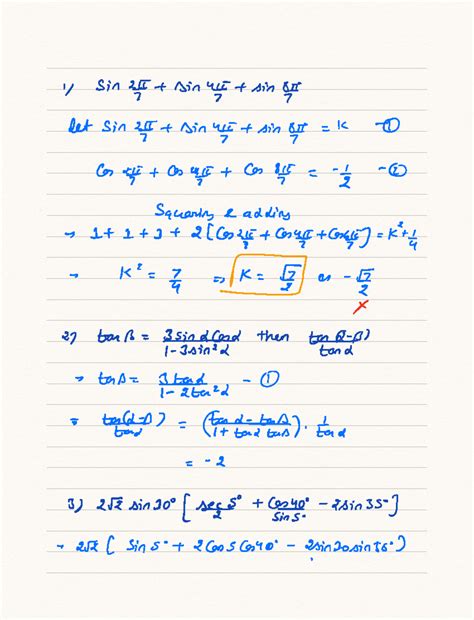 1) Sin 2π/7 + sin 4π/7 + sin 8π/7
Let Sin 2π/7 + sin 4π/7 + sin 8π/7 = K -①
Cos 2π/7 + Cos 4π/7 + Cos 8π/7 = -1/2 -②
Squaring & adding
→ 1+1+1+2[Cos 2π/7 + Cos 4π/7 + Cos 6π/7] = K² + 1/4
→ K² = 7/4 ⇒ K = √7/2 or -√7/2
×
2) tan β = 3 sin α cos α / 1-3 sin² α then tan(α-β) / tan α
→ tan β = 3 tan α / 1-2 tan² α -①
= tan(α-β) / tan α = (tan α - tan β / 1 + tan α tan β) · 1/tan α
= -2
3) 2√2 sin 10° [sec 5°/2 + cos 40°/sin 5° - 2 sin 35°]
→ 2√2 ( Sin 5° + 2 Cos 5 Cos 40° - 2 sin 10 sin 35°)